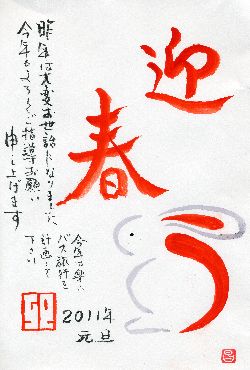 迎春
昨年は大変お世話になりました
今年もよろしくご指導お願い
申し上げます
今年も楽しい
バス旅行を
計画して
下さい
2011年
元旦